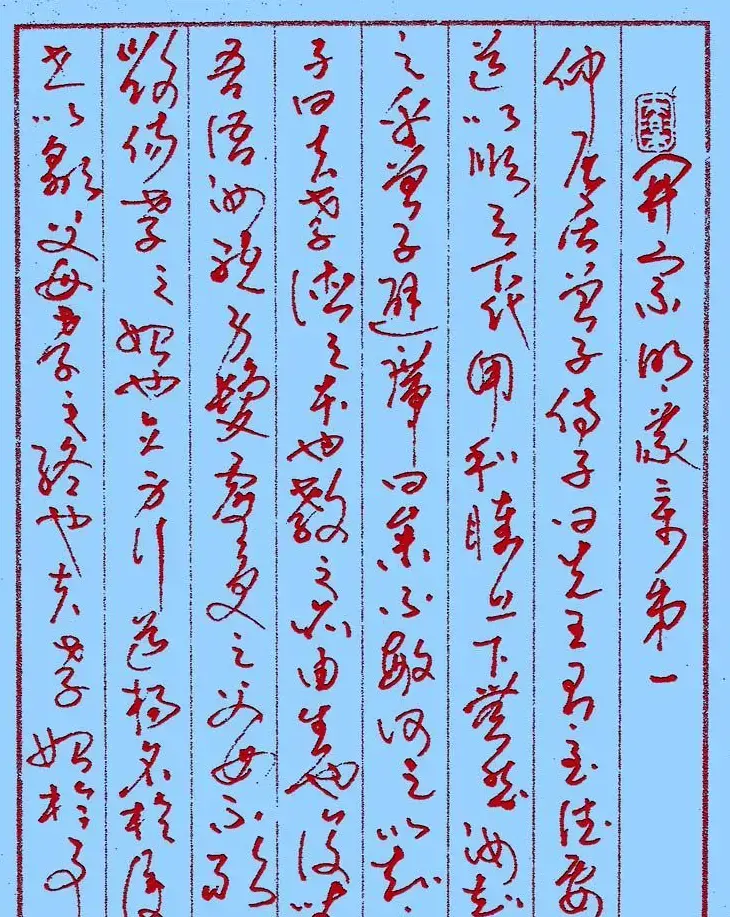 開宗明義章第一
仲尼居曾子侍子曰先王有至德要
道以順天下民用和睦上下無怨汝知
之乎曾子避席曰參不敏何足以知
子曰夫孝德之本也教之所由生也復坐
吾語汝體身髮膚受之父母不敢
毀傷孝之始也立身行道揚名於後
世以顯父母孝之終也夫孝始於事